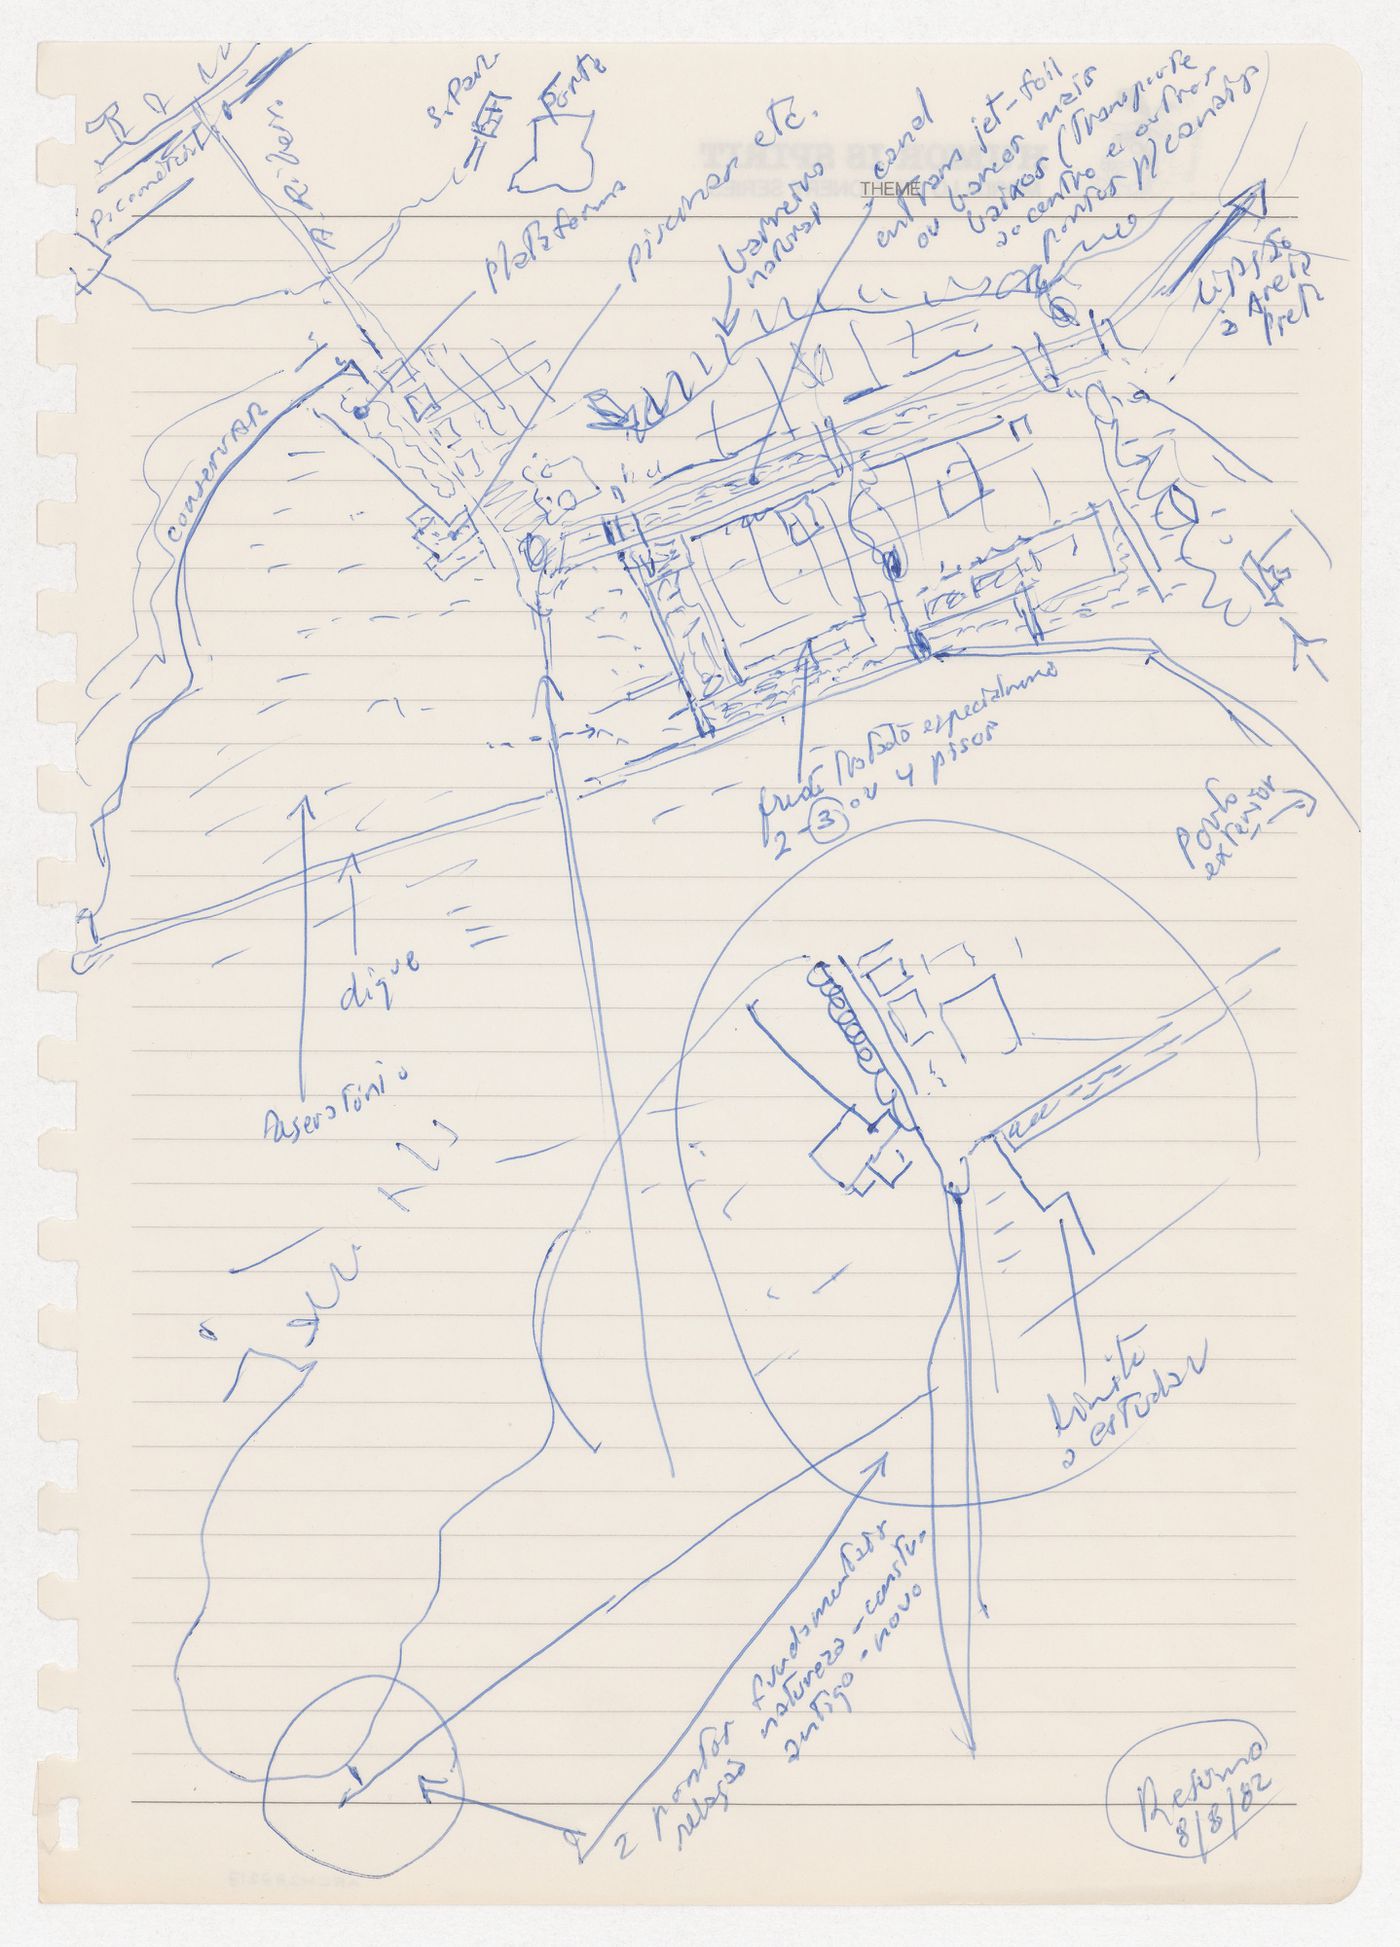 S. Paulo
Fonte
A. Ribeiro
plataforma
piscinas etc.
barreira
natural
canal
entram jet-foil
ou barcos mais
baixos (transporte
ao centro e outros
pontos p/ conatsp
THEME
Ligação
à Areia
Preta
conservar
frente tratado especialmente
2-3 ou 4 pisos
Porto
exterior
dique
Reservatório
limite
a estudar
2 pontos fundamentais
relação natureza-constru.
antigo-novo
Resumo
8/8/82